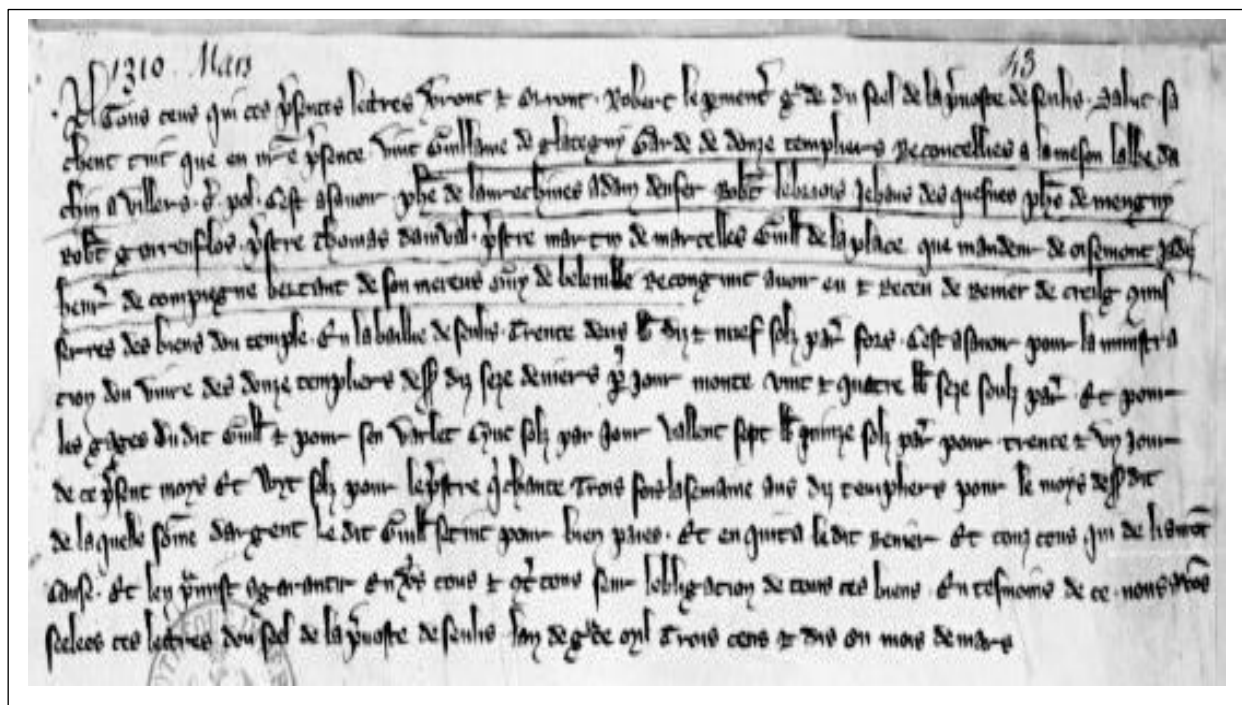 1310. Mars
43
A Tous ceus qui ces p̄sentes lettres verront & orront. Robert le garde du seel de la p̄voste de senlis. Salut. sa
chent tuit que en n̄re p̄sence vint Guillaume de glategny Garde de douze templiers Reconcellies a la meson labbe da
chin a villers. s̄. pol. Cest asavoir. ph̄e de lamrechines adam denfer Rob̄t lebarrois Jehans des quesnes ph̄e de mengny
Rob̄t gorrenflos. p̄stre Thomas danval. p̄stre martin de marcelles Guill̄ de la place que mandem de oisemont
henr̄ de compiegne bertaut de son mereus Guiy de belenille Recongnut avoir eu & Receu de Renier de creilg
des biens dou temple. En la baillie de senlis. Trente deus ll̄ diz & nuef solz par̄ fors. Cest asavoir pour la ministra
cion dou vivre des douze templiers dess̄ diz seze deniers p̄ Jour monte vint & quatre ll̄ seze soulz par̄. Et pour
les gages du dit Guill̄ & pour son varlet Cync solz par Jour vallent sept ll̄ quinze solz par̄ pour trente & un Jour
de ce p̄sent moys Et solz pour le p̄stre q̄ chante Trois fois la semaine aus diz templiers pour le moys dess̄ dit
de la quelle som̄e dargent Le dit Guill̄ se tint pour bien paies. Et en quita le dit Renier Et touz ceus qui de li
cause. Et len p̄mist a garantir Env̄s tous & 9t̄ tous seur lobligacion de tous ces biens. En tesmoins de ce. nous avōs
seelees ces lettres dou seel de la p̄voste de senlis. Lan de gr̄ce mil Trois cens & dis ou mois de mars